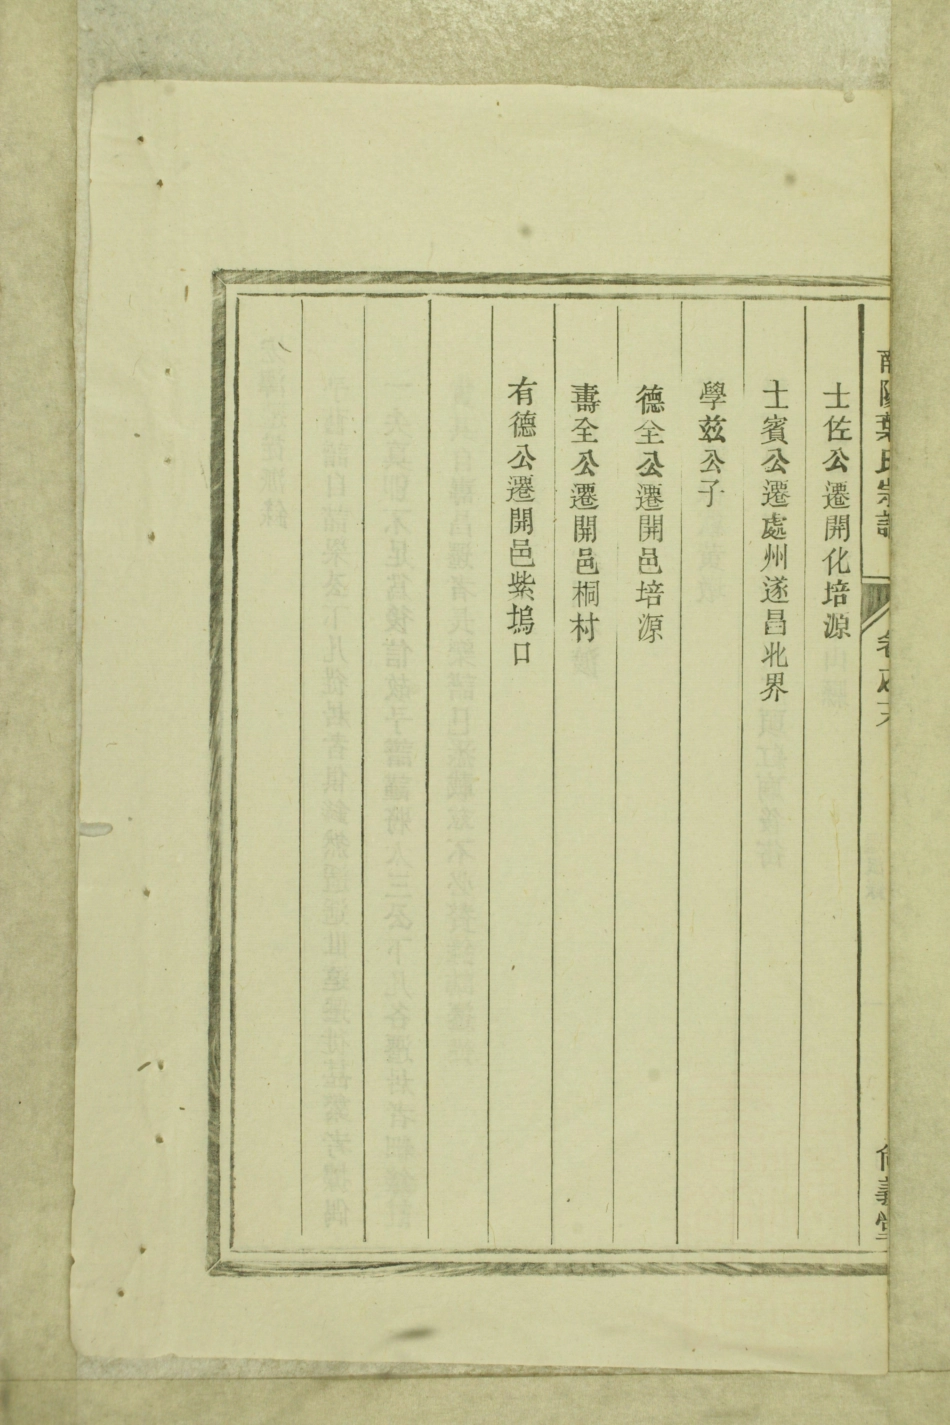 南陽葉氏宗譜
卷之六
尙義堂
士佐公遷開化培源
士賓公遷處州遂昌北界
學玆公子
德全公遷開邑培源
壽全公遷開邑桐村
有德公遷開邑紫塢口